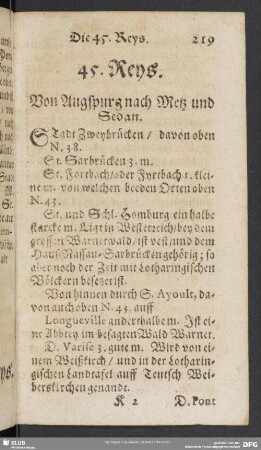 Die 45. Reys. 219
45. Reys.
Von Augspurg nach Metz und
Sedan.
STadt Zweybrücken / davon oben
N. 38.
St. Sarbrücken 3. m.
St. Forbach / oder Fyrtbach 1. klei-
ne m. von welchen beeden Orten oben
N. 43.
St. und Schl. Homburg ein halbe
starcke m. Ligt in Westereich / bey dem
grossen Warnetwald / ist vest / und dem
Hauß Nassau-Sarbrücken gehörig; so
aber noch der Zeit mit Lotharingischen
Völckern besetzet ist.
Von hinnen durch S. Ayoult, da-
von auch oben N. 43. auff
Longueville anderthalbe m. Ist ei-
ne Abbtey im besagten Wald Warnet.
D. Varise 3. gute m. Wird von ei-
nem Weißkirch / und in der Lotharin-
gischen Landtafel auff Teutsch Wei-
berskirchen genandt.
K 2 D. Pont
SLUB
DFG